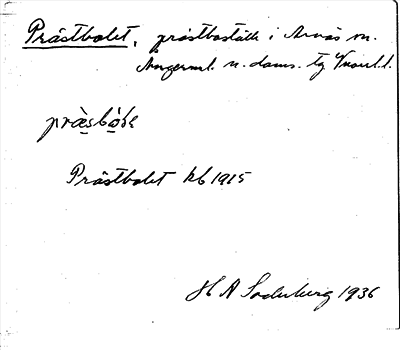 Prästbolet, prästboställe i Arnäs sn.
Ångerml. n. doms. tg
præsbóḷe
Prästbolet kb 1915
H A Söderberg 1936